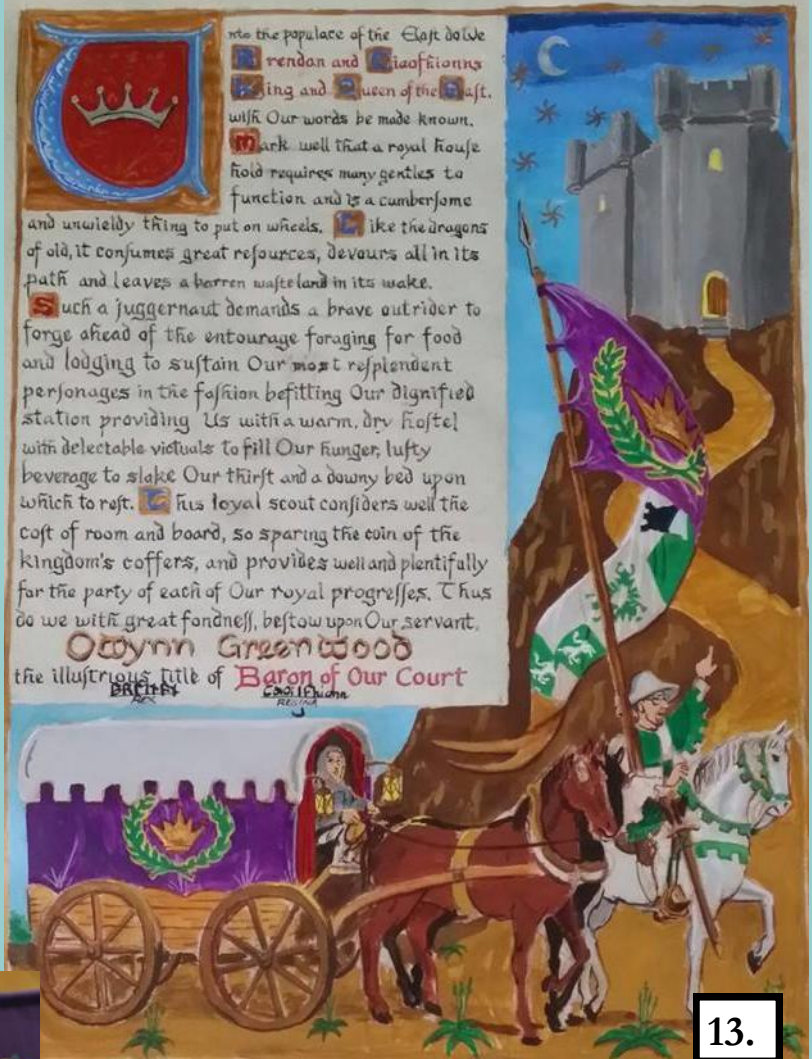 Unto the populace of the Eaſt do We
Brendan and
King and Queen of the Eaſt.
wiſh Our words be made known.
Mark well that a royal houſe
hold requires many gentles to
function and is a cumberſome
and unwieldy thing to put on wheels. Like the dragons
of old, it conſumes great reſources, devours all in its
path and leaves a barren waſteland in its wake.
Such a juggernaut demands a brave outrider to
forge ahead of the entourage foraging for food
and lodging to suſtain Our most reſplendent
perſonages in the faſhion befitting Our dignified
station providing Us with a warm, dry hoſtel
with delectable victuals to fill Our hunger, luſty
beverage to slake Our thirſt and a downy bed upon
which to reſt. This loyal scout conſiders well the
coſt of room and board, so sparing the coin of the
kingdom's coffers, and provides well and plentifully
for the party of each of Our royal progreſſes. Thus
do we with great fondneſſ, beſtow upon Our servant,
Owynn Greenwood
the illuſtrious title of Baron of Our Court
13.